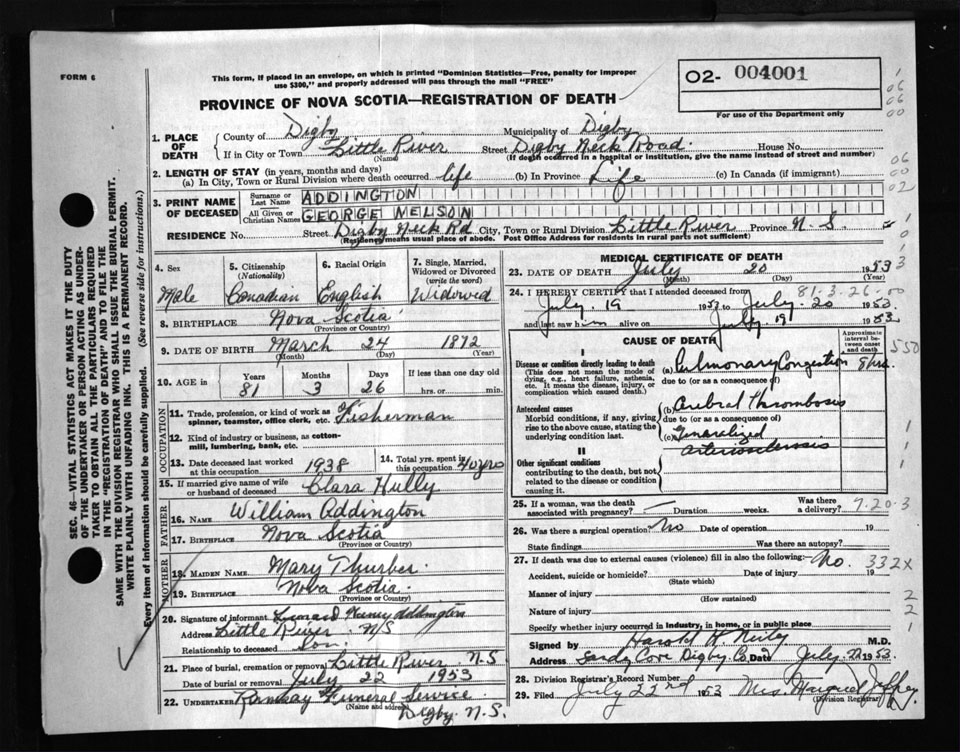 FORM 6
This form, if placed in an envelope, on which is printed "Dominion Statistics—Free, penalty for improper
use $300," and properly addressed will pass through the mail "FREE"
O2- 004001
For use of the Department only
PROVINCE OF NOVA SCOTIA—REGISTRATION OF DEATH
1. PLACE OF DEATH { County of Digby Municipality of Digby
If in City or Town Little River Street Digby Neck Road. House No.
(Name) (If death occurred in a hospital or institution, give the name instead of street and number)
2. LENGTH OF STAY (in years, months and days)
(a) In City, Town or Rural Division where death occurred life (b) In Province Life (c) In Canada (if immigrant)
3. PRINT NAME OF DECEASED { Surname or Last Name ADDINGTON
All Given or Christian Names GEORGE NELSON
RESIDENCE No. Street Digby Neck Rd City, Town or Rural Division Little River Province N.S.
(Residency means usual place of abode. Post Office Address for residents in rural parts not sufficient)
4. Sex Male
5. Citizenship (Nationality) Canadian
6. Racial Origin English
7. Single, Married, Widowed or Divorced (write the word) Widowed
8. BIRTHPLACE Nova Scotia
(Province or Country)
9. DATE OF BIRTH March 24 1872
(Month) (Day) (Year)
10. AGE IN Years 81 Months 3 Days 26 If less than one day old hrs. or min.
OCCUPATION
11. Trade, profession, or kind of work as spinner, teamster, office clerk, etc. Fisherman
12. Kind of industry or business, as cotton-mill, lumbering, bank, etc.
13. Date deceased last worked at this occupation 1938
14. Total yrs. spent in this occupation 40 yrs
15. If married give name of wife or husband of deceased Clara Hully
FATHER
16. NAME William Addington
17. BIRTHPLACE Nova Scotia
(Province or Country)
MOTHER
18. MAIDEN NAME Mary Thurber.
19. BIRTHPLACE Nova Scotia.
(Province or Country)
20. Signature of informant Addington
Address Little River N/S
Relationship to deceased Son
21. Place of burial, cremation or removal Little River N.S
Date of burial or removal July 22 1953
22. UNDERTAKER Ramsay Funeral Service
(Name and address) Digby. N.S.
MEDICAL CERTIFICATE OF DEATH
23. DATE OF DEATH July 20 1953
(Month) (Day) (Year)
81.3.26.00
24. I HEREBY CERTIFY that I attended deceased from
July 19 1953 to July 20 1953
and last saw him alive on July 19 1953
CAUSE OF DEATH
Approximate interval between onset and death
I
Disease or condition directly leading to death
(This does not mean the mode of dying, e.g., heart failure, asthenia, etc. It means the disease, injury, or complication which caused death.)
(a) Pulmonary Congestion 8 hrs.
due to (or as a consequence of)
Antecedent causes
Morbid conditions, if any, giving rise to the above cause, stating the underlying condition last.
(b) Cerebral Thrombosis
due to (or as a consequence of)
(c) Generalized arteriosclerosis
II
Other significant conditions
contributing to the death, but not related to the disease or condition causing it.
25. If a woman, was the death associated with pregnancy? Duration weeks. Was there a delivery? 7.20.3
26. Was there a surgical operation? No Date of operation 19
State findings Was there an autopsy?
27. If death was due to external causes (violence) fill in also the following:— No. 332X
Accident, suicide or homicide? Date of injury 19
(State which)
Manner of injury
(How sustained)
Nature of injury
Specify whether injury occurred in industry, in home, or in public place
Signed by Harold H. M.D.
Address Sandy Cove Digby Co Date July 22 1953.
28. Division Registrar's Record Number
29. Filed July 22nd 1953 Mrs.
(Division Registrar)
SEC. 46—VITAL STATISTICS ACT MAKES IT THE DUTY
OF THE UNDERTAKER OR PERSON ACTING AS UNDER-
TAKER TO OBTAIN ALL THE PARTICULARS REQUIRED
IN THE "REGISTRATION OF DEATH" AND TO FILE THE
SAME WITH THE DIVISION REGISTRAR WHO SHALL ISSUE THE BURIAL PERMIT.
WRITE PLAINLY WITH UNFADING INK. THIS IS A PERMANENT RECORD.
Every item of information should be carefully supplied. (See reverse side for instructions.)
550